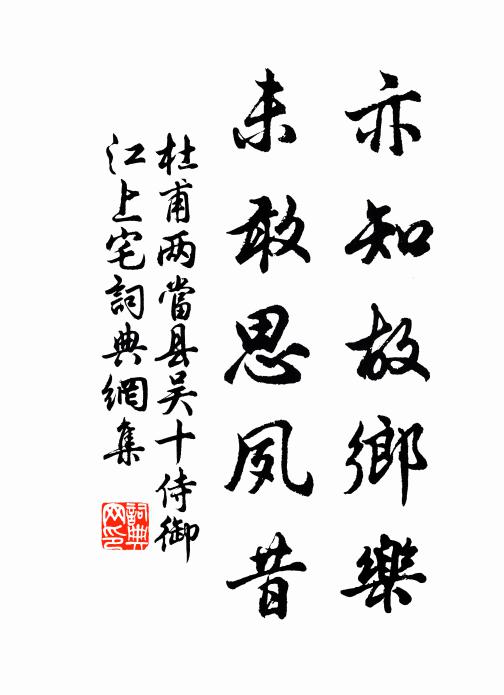 亦知故鄉樂
未敢思夙昔
杜甫两當县吴十侍御
江上宅詞典網集
詞典网印